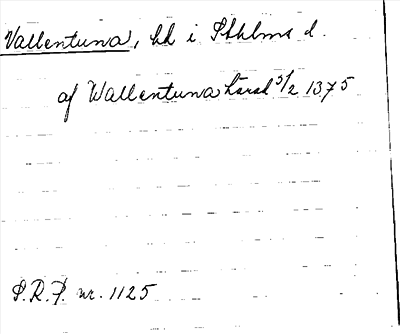 Vallentuna, hd i Sthlms d.
af Wallentuna hæradh 5/2 1375
S.R.P. nr. 1125